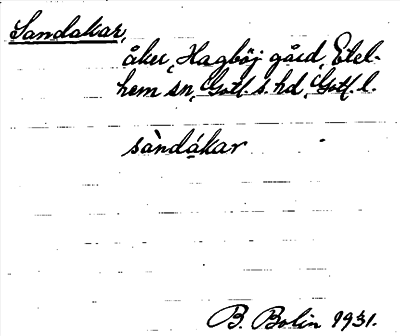 Sandakar,
åker, Hagböj gård, Etel-
hem sn, Gotl. s. hd, Gotl. l.
sàndákar
B. Bolin 1931.